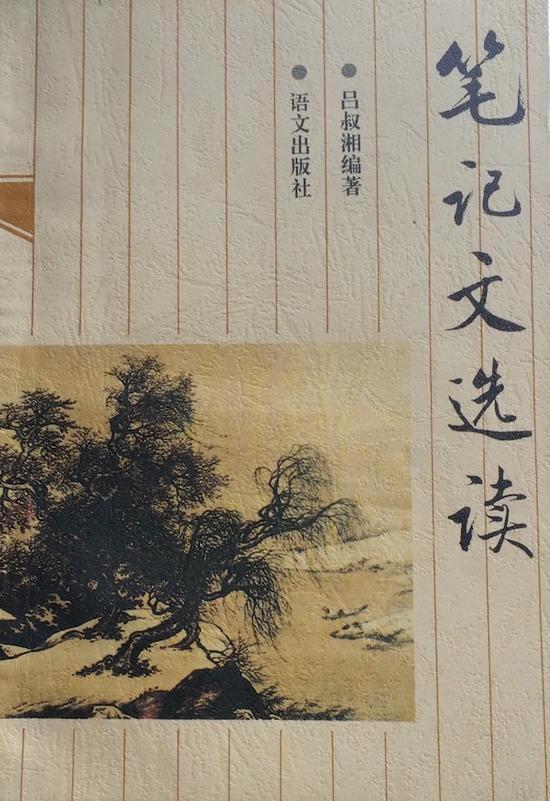 笔记文选读
●吕叔湘编著
●语文出版社